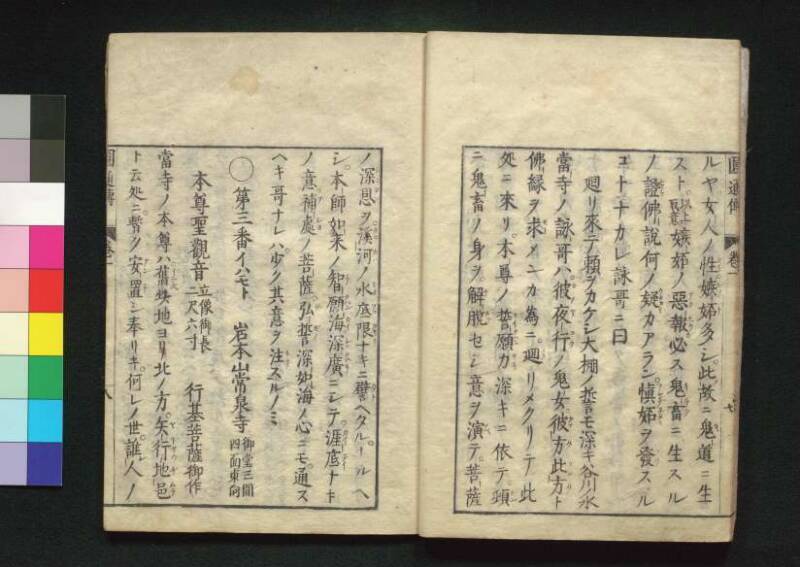 圓通傳 卷一 七
ルヤ女人ノ性嫉妬多シ此故ニ鬼道ニ生
スト已上取意嫉妬ノ惡報必ス鬼畜ニ生スル
ノ證佛說何ノ疑カアラン愼妬ヲ發スル
コトナカレ詠哥ニ曰
廻リ來テ頼ヲカケシ大棚ノ誓モ深キ谷川ノ水
當寺ノ詠哥ハ彼夜行ノ鬼女彼方此方ト
佛縁ヲ求メンカ為ニ廻リメクリテ此
処ニ來リ本尊ノ誓願カ深キニ依テ頭
ニ鬼畜ノ身ヲ解脫セシ意ヲ演テ菩薩
ノ深恩ヲ溪河ノ水底限ナキニ譬ヘタルールヘ
シ本師如来ノ智願海深廣ニシテ涯底ナキ
ノ意補處ノ菩薩弘誓深如海ノ心ニモ通ス
ヘキ哥ナレハ少ク其意ヲ注スルノミ
〇第三番イハモト 岩本山常泉寺 御堂三間四面東向
本尊聖觀音 立像御長二尺六寸 行基菩薩御作
當寺ノ本尊ハ舊蹟地ヨリ北ノ方矢行地邑
ト云処ニ暫ク安置シ奉リキ何レノ世誰人ノ
圓通傳 卷一 八